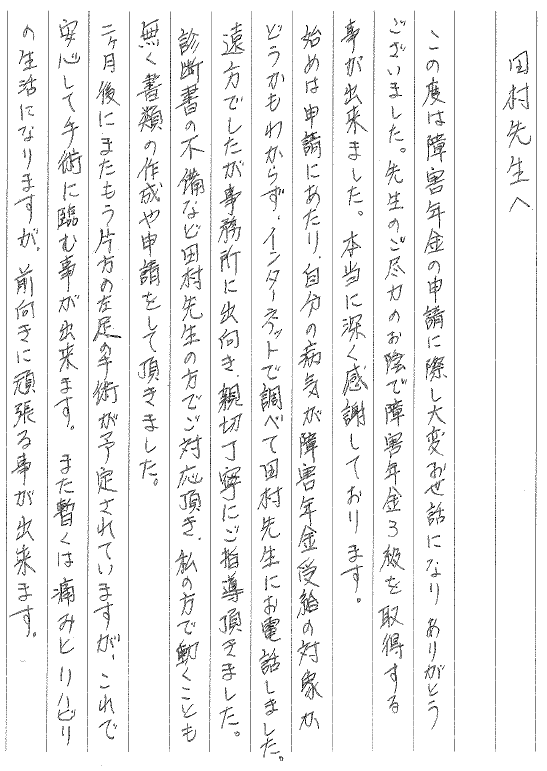 田村先生へ
この度は障害年金の申請に際し大変お世話になりありがとう
ございました。先生のご尽力のお陰で障害年金3級を取得する
事が出来ました。本当に深く感謝しております。
始めは申請にあたり、自分の病気が障害年金受給の対象か
どうかもわからず、インターネットで調べて田村先生にお電話しました。
遠方でしたが事務所に出向き、親切丁寧にご指導頂きました。
診断書の不備など田村先生の方でご対応頂き、私の方で動くことも
無く書類の作成や申請をして頂きました。
二ヶ月後にまたもう片方の左足の手術が予定されていますが、これで
安心して手術に臨む事が出来ます。また暫くは痛みとリハビリ
の生活になりますが、前向きに頑張る事が出来ます。